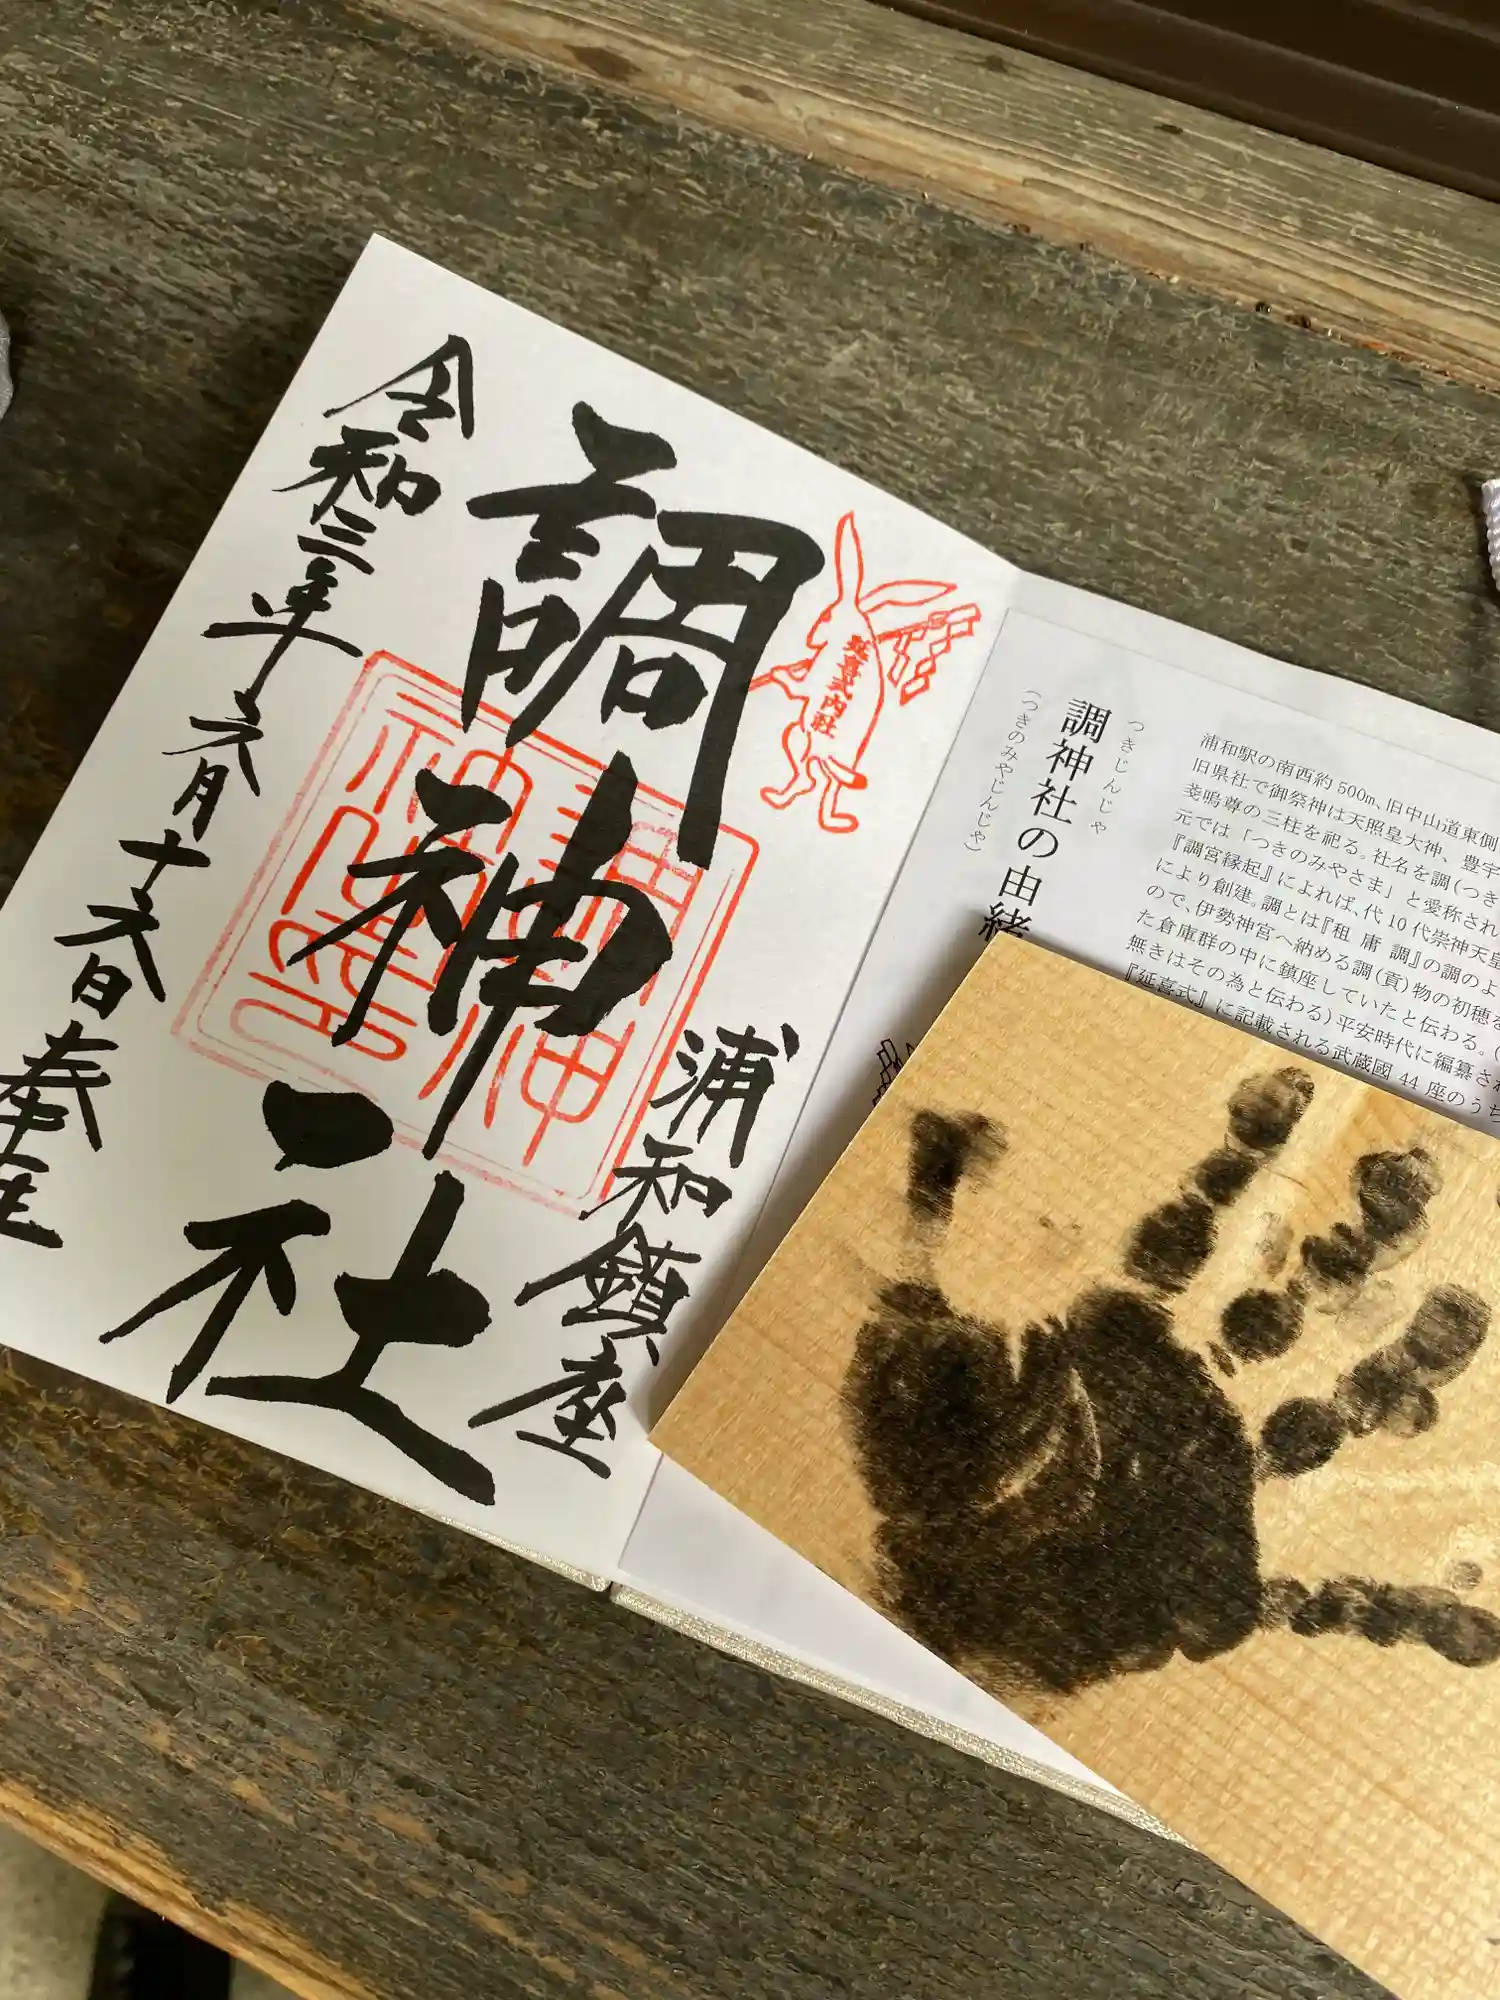 浦和鎮座
調神社
令和三年六月十六日奉拝
延喜式内社
調神社の由緒
つきじんじゃ
つきのみやじんじゃ)
浦和駅の南西約500m、旧中山道東側
旧県社で御祭神は天照皇大神、豊宇
戔嗚尊の三柱を祀る。社名を調(つき
元では「つきのみやさま」と愛称され
『調宮縁起』によれば、代10代崇神天皇
により創建。調とは『租庸調』の調のよ
ので、伊勢神宮へ納める調(貢)物の初穂を
た倉庫群の中に鎮座していたと伝わる。(
無きはその為と伝わる)平安時代に編纂され
『延喜式』に記載される武蔵國44座のうち